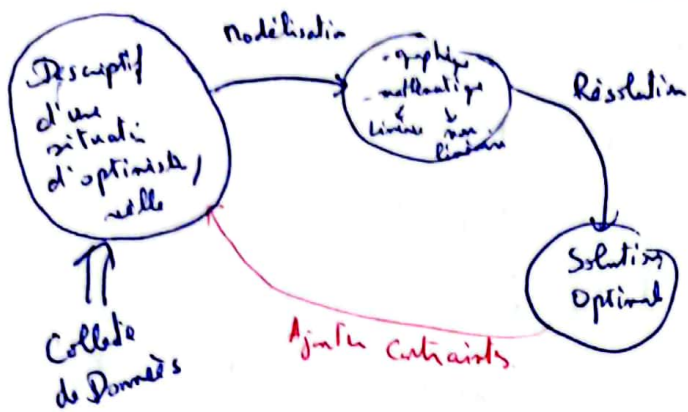 Modélisation
Descriptif
d'une
situation
d'optimisation,
réelle
- graphique
- mathématique
linéaire non
linéaire
Résolution
Solution
Optimal
Ajouter Contraintes
Collecte
de Données